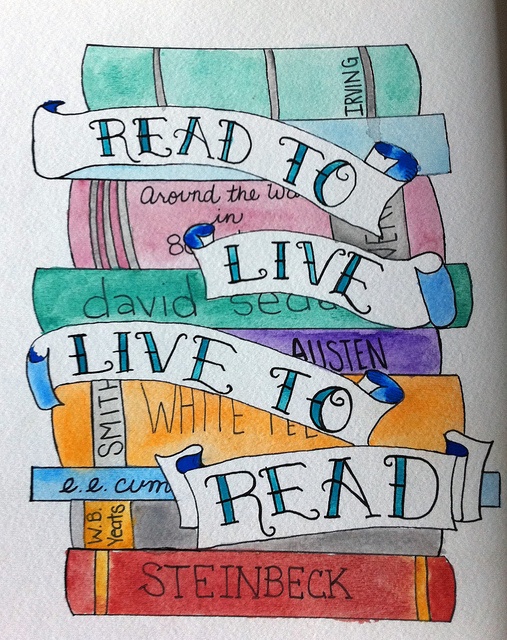 IRVING
READ TO
Around the
in
8
LIVE
david seda
AUSTEN
LIVE TO
SMITH
WHITE TE
e.e. cum
READ
W.B.
Yeats
STEINBECK